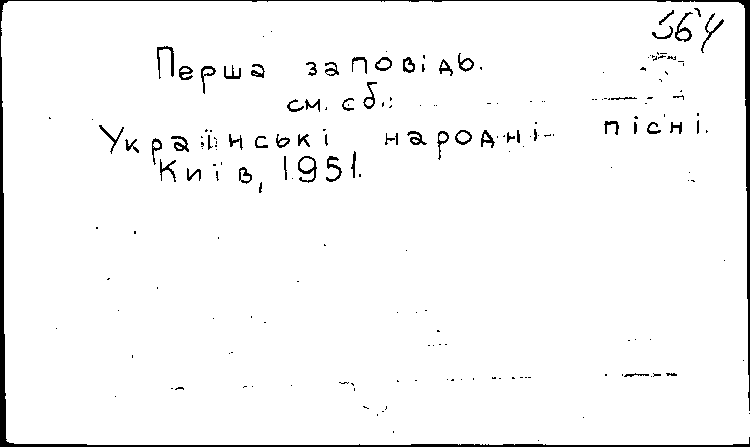 564
Перша заповідь.
см. сб.:
Українські народні пісні.
Київ, 1951.